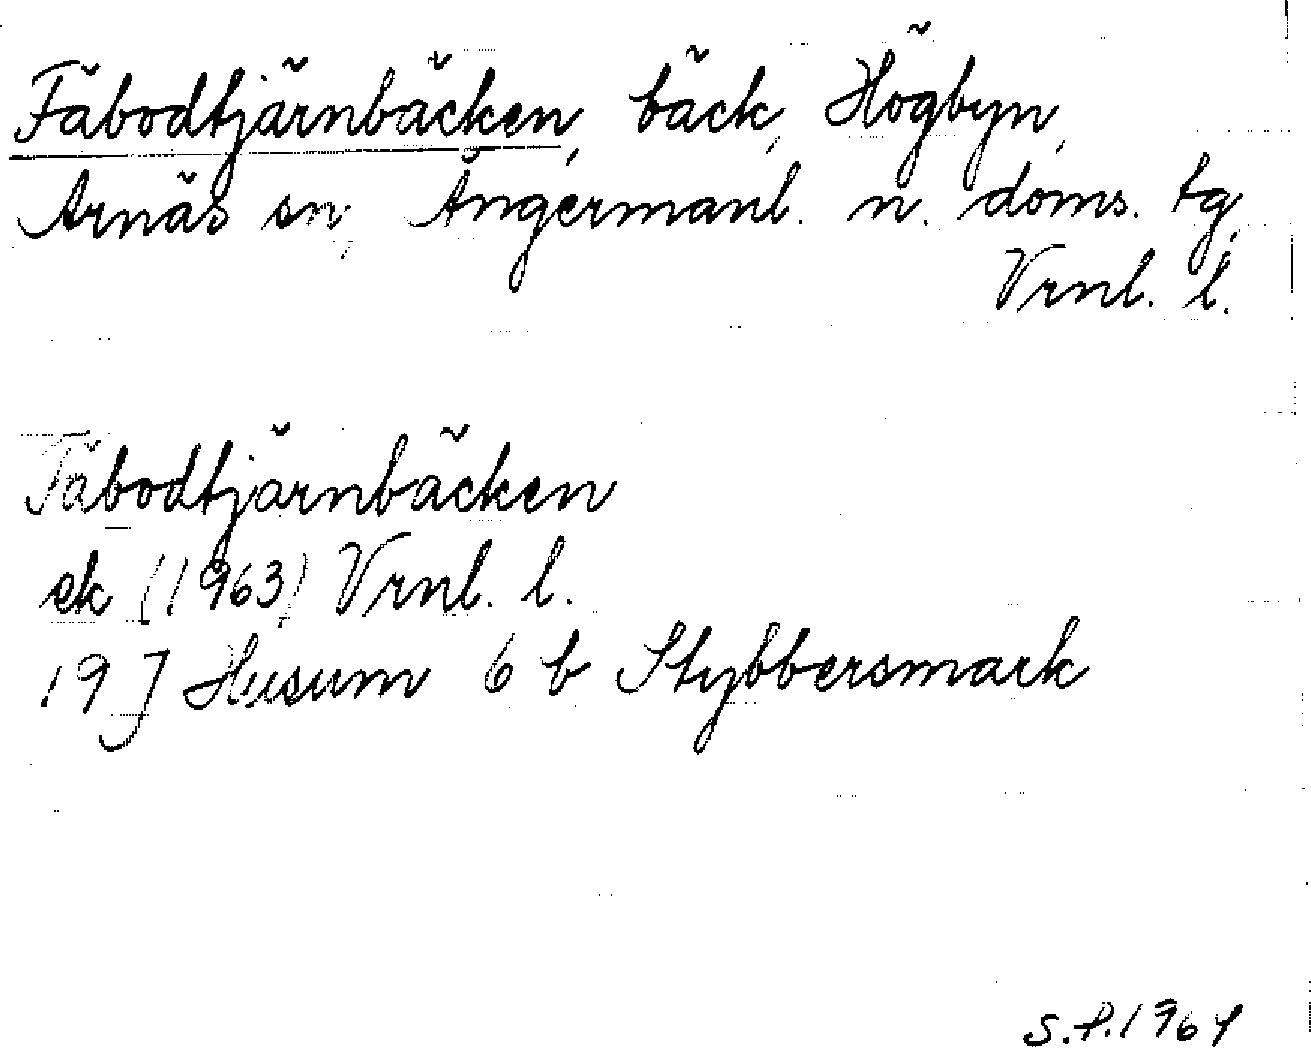 Fäbodtjärnbäcken, bäck, Högbyn,
Arnäs sn, Ångermanl. n. doms. tg,
Vrnl. l.
Fäbodtjärnbäcken
ek (1963) Vrnl. l.
19 J Husum 6 b Stybbersmark
S.P. 1964